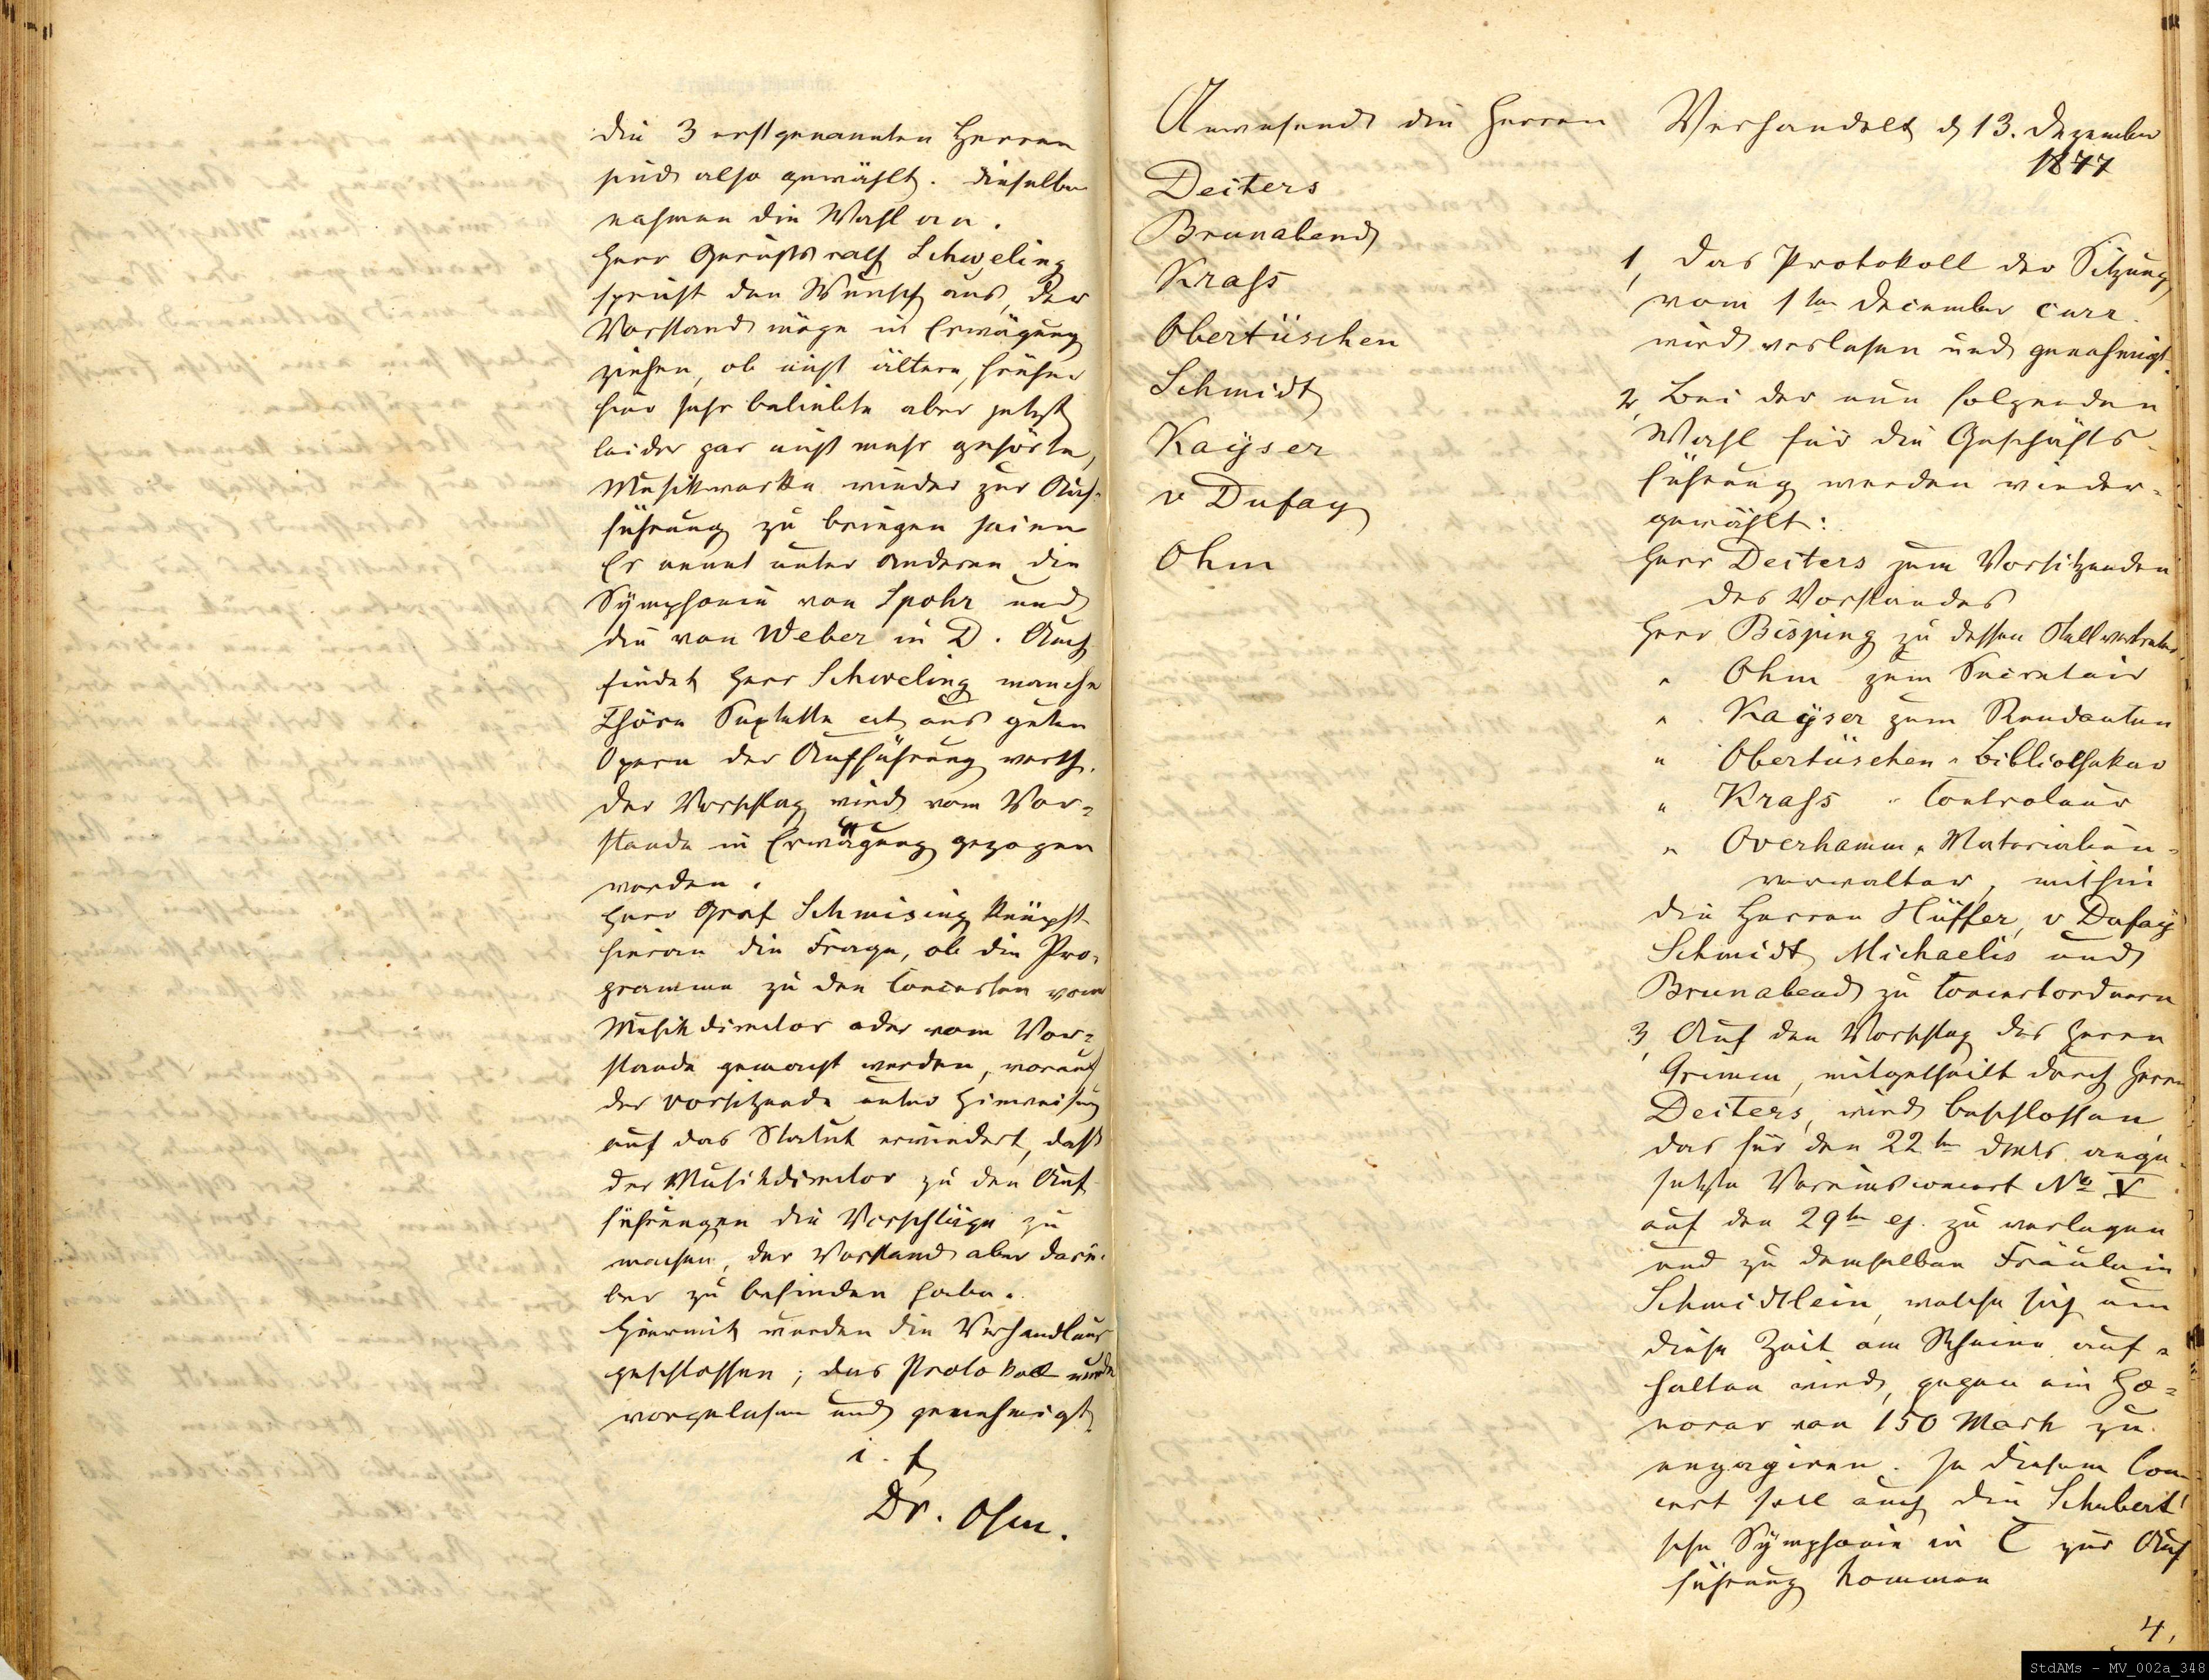 die 3 erstgenannten Herren
sind also gewählt. Dieselben
nahmen die Wahl an.
Herr Gerichtsrath Schweling
spricht den Wunsch aus, der
Vorstand möge in Erwägung
ziehen, ob nicht ältere, früher
hier sehr beliebte aber jetzt
leider gar nicht mehr gehörte,
Musikwerke wieder zur Auf-
führung zu bringen seien
Er nennt unter anderen die
Symphonie von Spohr und
die von Weber in D. Auch
findet Herr Schweling manche
Chöre Septette ect aus guten
Opern der Aufführung werth.
Der Vorschlag wird vom Vor-
stande in Erwägung gezogen
werden.
Herr Graf Schmising knüpft
hieran die Frage, ob die Pro-
gramme zu den Concerten vom
Musikdirector oder vom Vor-
stande gemacht werden, worauf
der Vorsitzende unter Hinweisung
auf das Statut erwiedert, daß
der Musikdirector zu den Auf-
führungen die Vorschläge zu
machen, der Vorstand aber darü-
ber zu befinden habe.
Hiermit werden die Verhandlung
geschlossen; das Protokoll wurde
vorgelesen und genehmigt
Dr. Ohm.
Anwesend die Herren
Deiters
Brunabend
Krass
Obertüschen
Schmidt
Kayser
v Dufay
Ohm
Verhandelt d 13. Dezember
1877
1, Das Protokoll der Sitzung
vom 1ten December curr.
wird verlesen und genehmigt.
2, Bei der nun folgenden
Wahl für die Geschäfts-
führung werden wieder-
gewählt:
Herr Deiters zum Vorsitzenden
des Vorstandes
Herr Bisping zu dessen Stellvertreter
" Ohm zum Secretair
" Kayser zum Rendanten
" Obertüschen " Bibliothekar
" Krass " Controleur
" Overhamm " Materialien-
verwalter, mithin
die Herren Hüffer, v Dufay
Schmidt, Michaelis und
Brunabend zu Concertordnern
3, Auf den Vorschlag des Herrn
Grimm, mitgetheilt durch Herrn
Deiters, wird beschlossen
das für den 22ten dess. ange-
setzte Vereinsconcert No V
auf den 29ten ej. zu verlegen
und zu demselben Fräulein
Schmidtlein, welche sich um
diese Zeit am Rheine auf-
halten wird, gegen ein Ho-
norar von 150 Mark zu
engagiren. In diesem Con-
cert soll auch die Schubert'
sche Symphonie in C zur Auf
führung kommen
4,
StdAMs - MV_002a_348